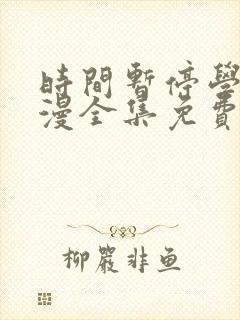 時間暫停學
漫全集免費
柳嚴非魚